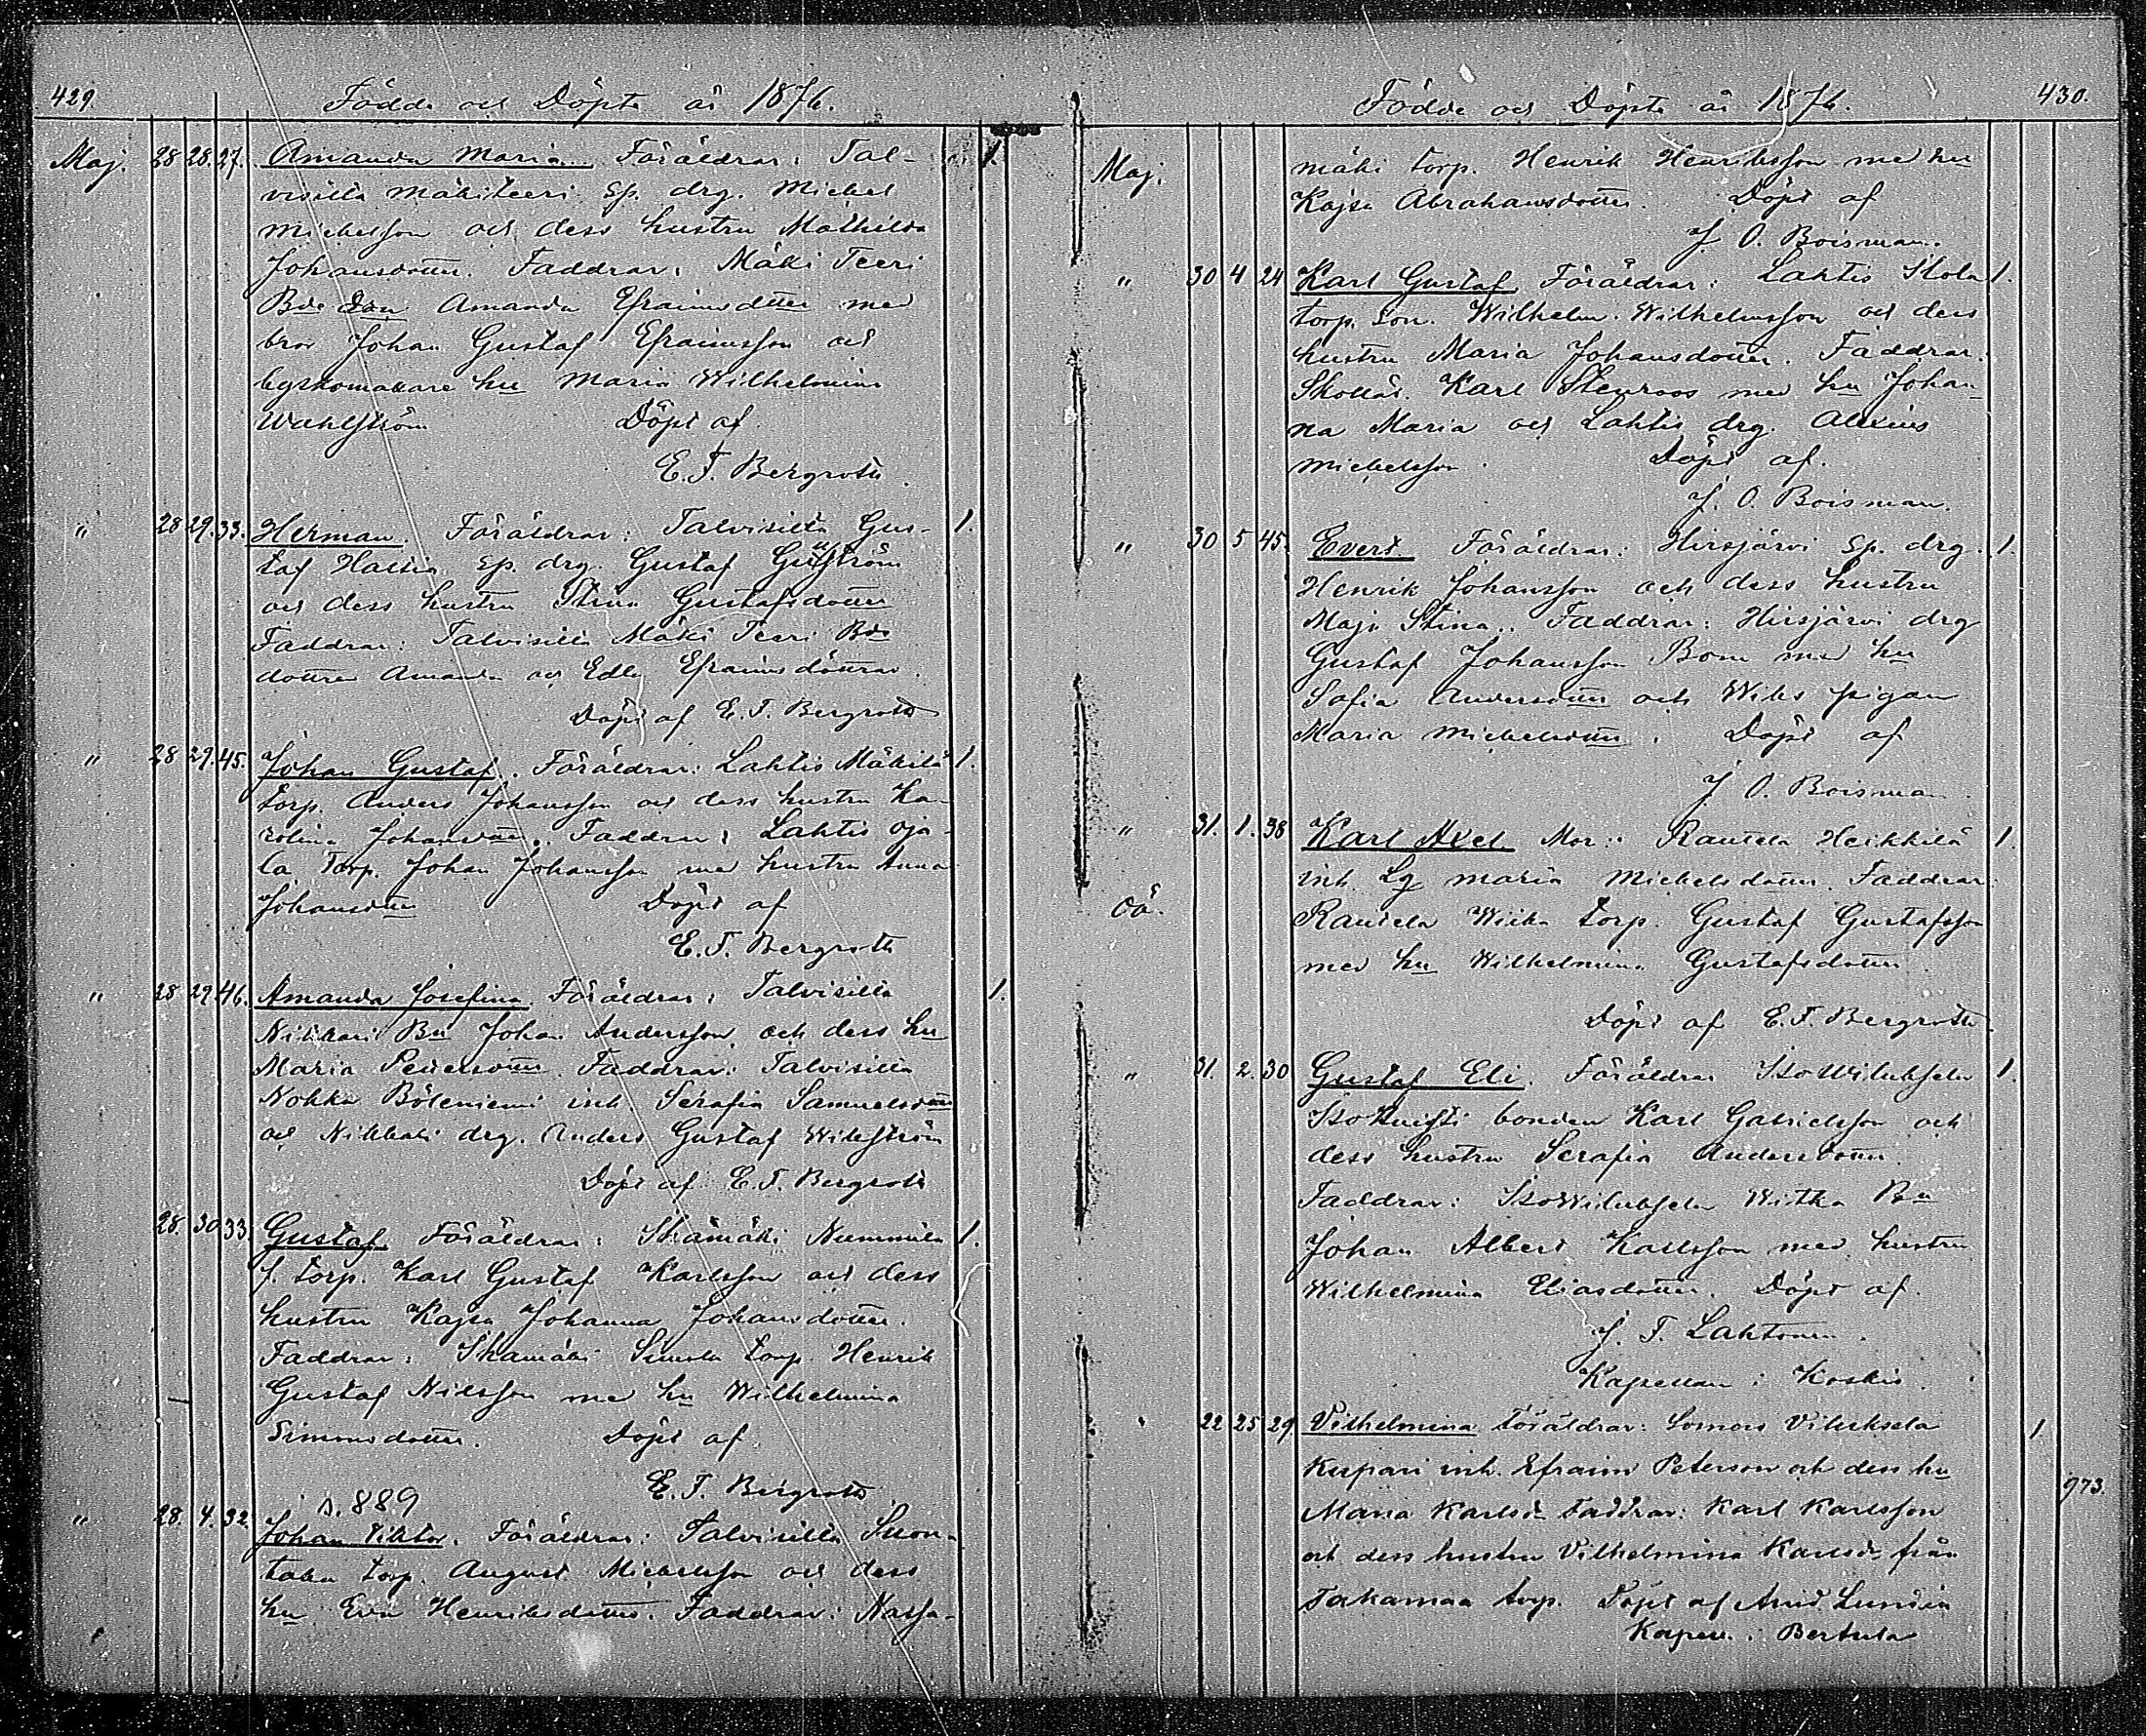 429.
Födde och Döpte år 1876.
Maj. 28 28. 27. Amanda Maria. Föräldrar: Tal- 1.
visilla Mäkiteeri Sp. drg. Michel
Michelsson och dess hustru Mathilda
Johansdotter. Faddrar: Mäki Teeri
Bde Don Amanda Efraimsdotter med
bror Johan Gustaf Efraimsson och
byskomakare hu Maria Wilhelmina
Wahlström Döpt af
E. F. Bergroth.
" 28 29. 33. Herman. Föräldrar: Talvisilla Gus- 1.
taf Sp. drg. Gustaf
och dess hustru Stina Gustafsdotter
Faddrar: Talvisilla Mäki Teeri Bde
dottrar Amanda och Edla Efraimsdöttrar.
Döpt af E. F. Bergroth
" 28 29. 45. Johan Gustaf. Föräldrar: Lahtis Mäkilä 1.
torp. Anders Johansson och dess hustru Ka-
rolina Johansdotter. Faddrar: Lahtis Oja-
la Torp. Johan Johansson med hustru Anna
Johansdotter Döpt af
E. F. Bergroth
" 28 29. 46. Amanda Josefina. Föräldrar: Talvisilla 1.
Nikkari Bn Johan Andersson och dess hu
Maria Petersdotter. Faddrar: Talvisilla
Nokka Böleniemi inh. Serafia Samuelsdotter
och Nikkari drg. Anders Gustaf Wikström
Döpt af E. F. Bergroth
28. 30. 33. Gustaf. Föräldrar: Nummila 1.
f. torp. Karl Gustaf Karlsson och dess
hustru Kajsa Johanna Johansdotter.
Faddrar: Simola torp. Henrik
Gustaf Nilsson med hu Wilhelmina
Simonsdotter. Döpt af
E. F. Bergroth
s. 889
" 28. 4. 32. Johan Viktor. Föräldrar: Talvisilla Suon-
taka torp. August Michelsson och dess
hu Eva Henriksdotter. Faddrar: Nassa-
430.
Födde och Döpte år 1876.
Maj. mäki torp. Henrik Henriksson med hu
Kajsa Abrahamsdotter. Döpt af
J. O. Boisman.
" 30 4 24 Karl Gustaf. Föräldrar: Lahtis Skola 1.
torp. Son. Wilhelm Wilhelmsson och dess
hustru Maria Johansdotter. Faddrar:
Skollär. Karl Stenroos med hu Johan-
na Maria och Lahtis drg. Alexius
Michelsson. Döpt af.
J. O. Boisman.
" 30 5 45. Evert. Föräldrar: Hirsjärvi Sp. drg. 1.
Henrik Johansson och dess hustru
Maja Stina. Faddrar: Hirsjärvi drg
Gustaf Johansson Bom med hu
Sofia Andersdotter och Wiks pigan
Maria Michelsdotter. Döpt af
J. O. Boisman
" 31. 1. 38 Karl Axel. Mor: Rautela Heikkilä 1.
oä. inh. Lg Maria Michelsdotter. Faddrar:
Rautela Wiika torp. Gustaf Gustafsson
med hu Wilhelmina Gustafsdotter.
Döpt af E. F. Bergroth
" 31. 2. 30 Gustaf Eli. Föräldrar IsoWiluksela 1.
bonden Karl Gabrielsson och
dess hustru Serafia Andersdotter.
Faddrar: IsoWiluksela Witka Bn
Johan Albert Karlsson med hustru
Wilhelmina Eliasdotter. Döpt af.
J. F. Lahtonen.
Kapellan i Koskis.
" 22 25 29 Vilhelmina Föräldrar: Somero Viluksela 1
Kuspari inh. Efraim Peterson och dess hu
Maria Karlsd. Faddrar: Karl Karlsson 973.
och dess hustru Vilhelmina Karlsd. från
Tahamaa torp. Döpt af Arvid Lundén
Kapell. i Bertula